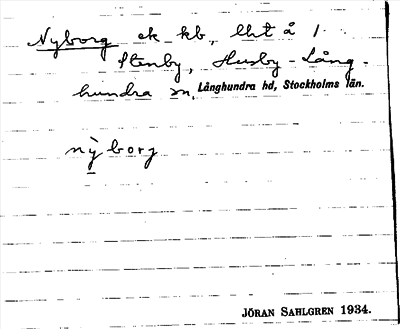 Nyborg ek kb, lht å 1
Stenby, Husby-Lång-
hundra sn, Långhundra hd, Stockholms län.
nỳborg
JÖRAN SAHLGREN 1934.